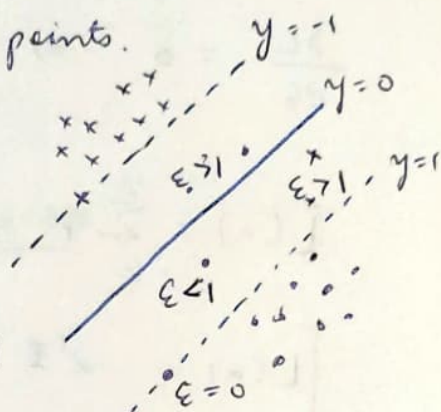 points.
y = -1
y = 0
ξ > 1
ξ > 1
y = 1
ξ < 1
ξ = 0